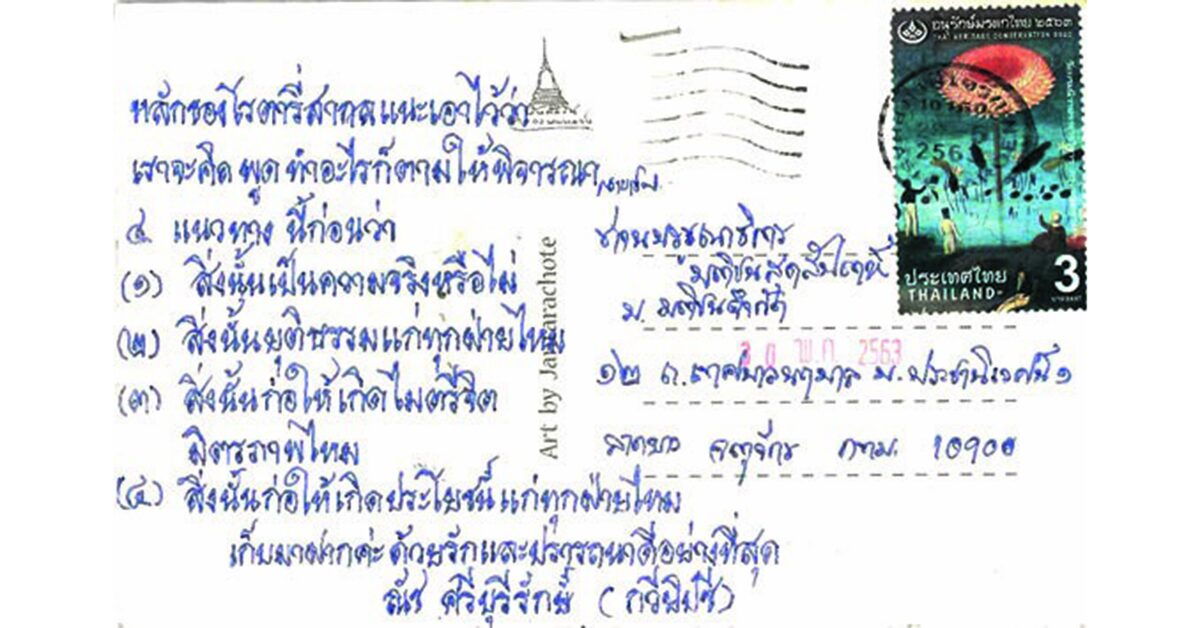 หลักของโรตารี่สากลแนะเอาไว้ว่า
เราจะคิด พูด ทำอะไรก็ตามให้พิจารณา
๔ แนวทาง นี้ก่อนว่า
(๑) สิ่งนั้นเป็นความจริงหรือไม่
(๒) สิ่งนั้นยุติธรรมแก่ทุกฝ่ายไหม
(๓) สิ่งนั้นก่อให้เกิดไมตรีจิต
มิตรภาพไหม
(๔) สิ่งนั้นก่อให้เกิดประโยชน์แก่ทุกฝ่ายไหม
เก็บมาฝากค่ะ ด้วยรักและปรารถนาดีอย่างที่สุด
ณัช ศรีบุรีรักษ์ (กวีพิปซี)
Art by Jamarachote
บรรณาธิการ
มติชนสุดสัปดาห์
บ. มติชนจำกัด
๑๒ ถ.เทศบาลนฤมาล ม. ประชานิเวศน์ ๑
ลาดยาว จตุจักร กทม. 10900
พ.ค. 2563
อนุรักษ์มรดกไทย ๒๕๖๓
THAI HERITAGE CONSERVATION 2020
10160
ประเทศไทย
THAILAND
3